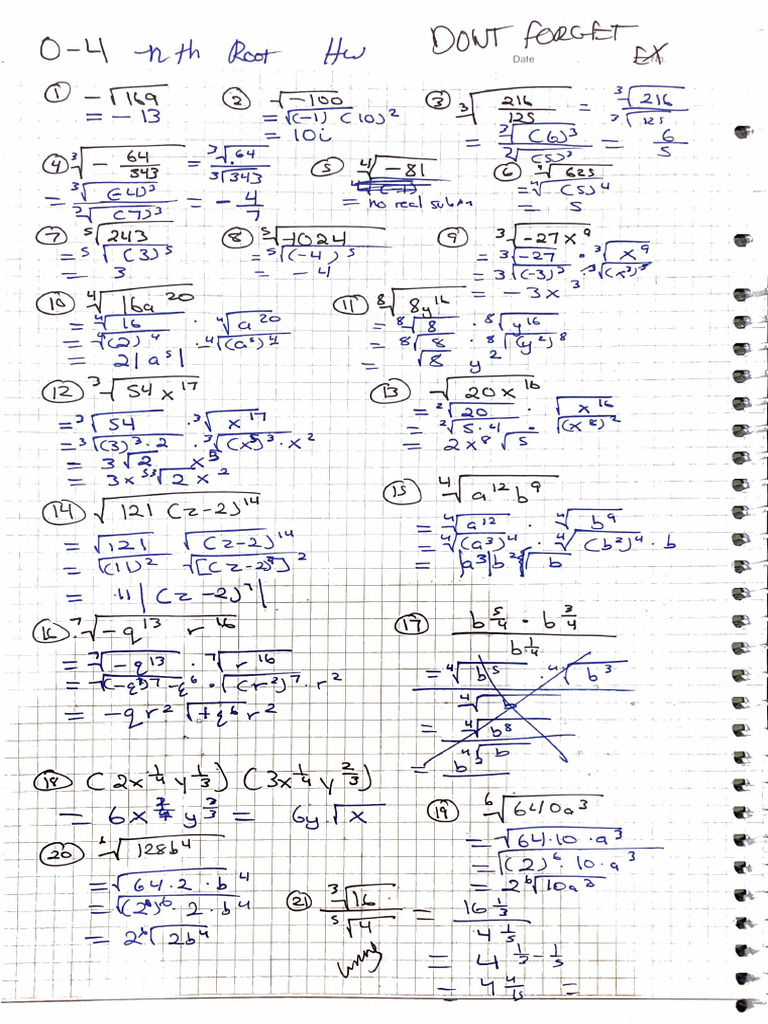 0-4 nth Root Hw DONT FORGET
Date No.
EX
① -√169
= -13
② √-100
= √(-1) (10)²
= 10i
③ ³√216/125 = ³√216/³√125
= ³√(6)³/³√(5)³ = 6/5
④ ³√-64/343 = ³√-64/³√343
= ³√(-4)³/³√(7)³ = -4/7
⑤ ⁴√-81
= no real
⑥ ⁴√625
= ⁴√(5)⁴
= 5
⑦ ⁵√243
= ⁵√(3)⁵
= 3
⑧ ⁵√-1024
= ⁵√(-4)⁵
= -4
⑨ ³√-27x⁹
= ³√-27 · ³√x⁹
= ³√(-3)³ · ³√(x³)³
= -3x³
⑩ ⁴√16a²⁰
= ⁴√16 · ⁴√a²⁰
= ⁴√(2)⁴ · ⁴√(a⁵)⁴
= 2|a⁵|
⑪ ⁸√8y¹⁶
= ⁸√8 · ⁸√y¹⁶
= ⁸√8 · ⁸√(y²)⁸
= √8 y²
⑫ ³√54x¹⁷
= ³√54 · ³√x¹⁷
= ³√(3)³·2 · ³√(x⁵)³·x²
= 3√2 x⁵
= 3x⁵ ³√2x²
⑬ √20x¹⁶
= ²√20 · √x¹⁶
= ²√5·4 · √(x⁸)²
= 2x⁸√5
⑭ √121(z-2)¹⁴
= √121 √(z-2)¹⁴
= √(11)² √[(z-2)⁷]²
= 11|(z-2)⁷|
⑮ ⁴√a¹²b⁹
= ⁴√a¹² · ⁴√b⁹
= ⁴√(a³)⁴ · ⁴√(b²)⁴·b
= |a³|b² ⁴√b
⑯ ⁷√-q¹³ r¹⁶
= ⁷√-q¹³ · ⁷√r¹⁶
= ⁷√(-q)⁷-q⁶ · √(r²)⁷·r²
= -qr² √+q⁶r²
⑰ b^5/4 · b^3/4 / b^1/4
= ⁴√b⁵ · ⁴√b³
= ⁴√b⁸
⁴√b
= b
⑱ (2x^1/4 y^1/3) (3x^1/4 y^2/3)
= 6x^2/4 y^3/3 = 6y√x
⑲ ⁶√640a³
= √64·10·a³
= √(2)⁶·10·a³
= 2⁶√10a³
⑳ ⁶√128b⁴
= √64·2·b⁴
= √(2)⁶·2·b⁴
= 2⁶√2b⁴
㉑ ³√16/⁵√4 = 16^1/3 / 4^1/5
= 4^1/3-1/5
= 4^4/15 =